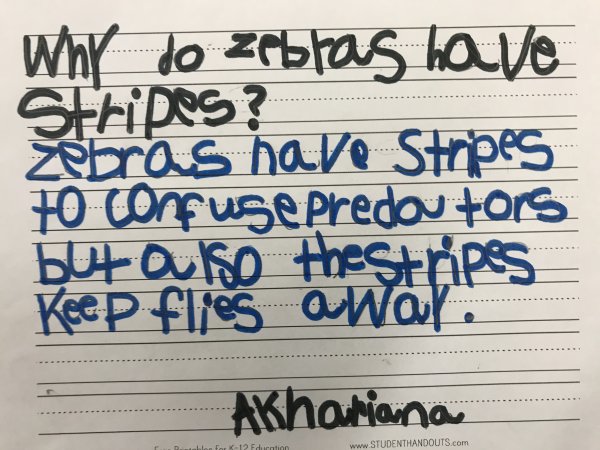 Why do zebras have
Stripes?
zebras have Stripes
to confuse predators
but also the stripes
Keep flies away.
AKhariana
Free Printables for K-12 Education
www.STUDENTHANDOUTS.com